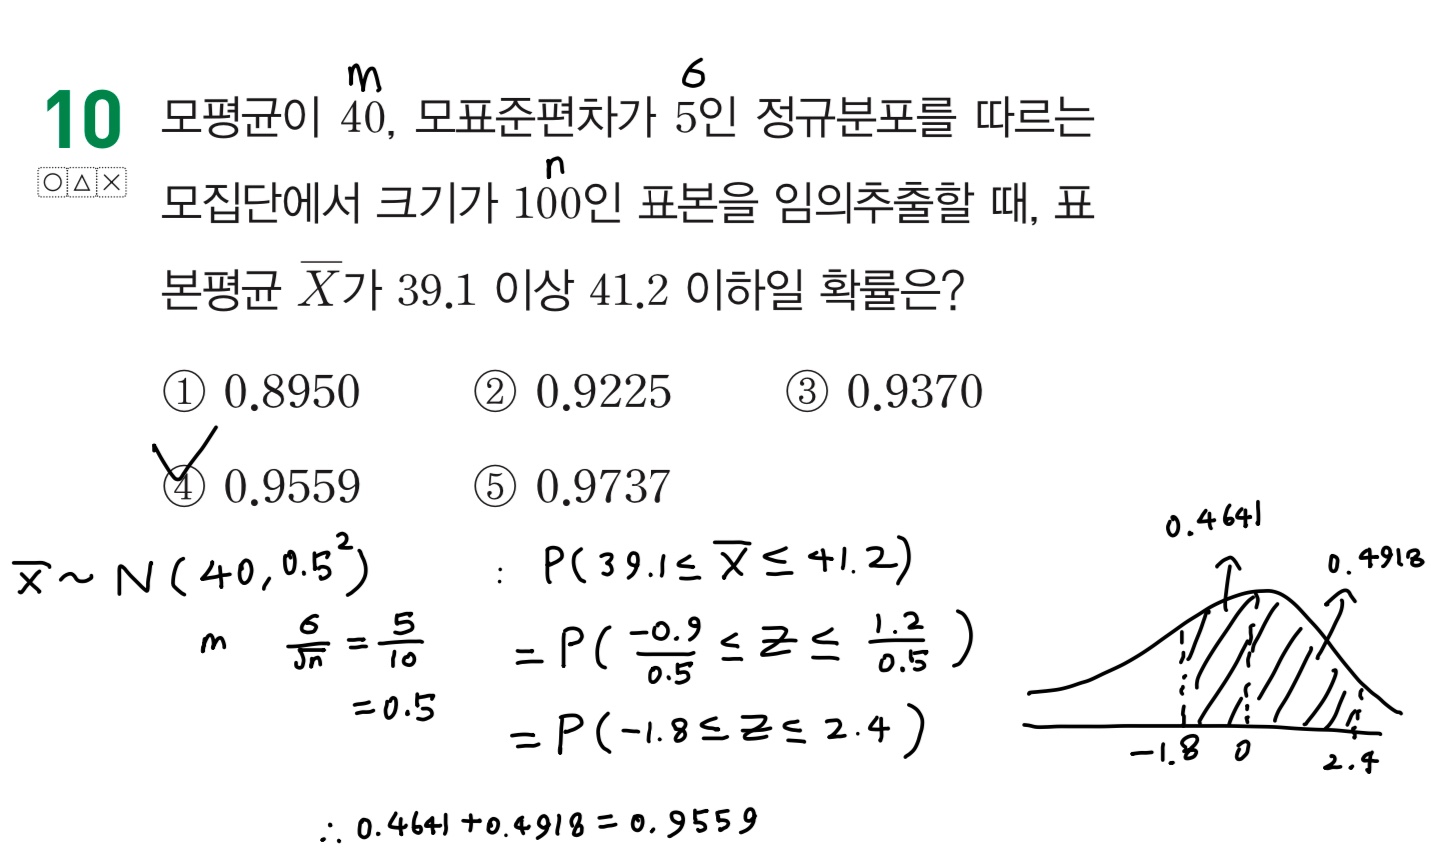 m σ
10 모평균이 40, 모표준편차가 5인 정규분포를 따르는
n
○ △ × 모집단에서 크기가 100인 표본을 임의추출할 때, 표
본평균 X̅가 39.1 이상 41.2 이하일 확률은?
① 0.8950 ② 0.9225 ③ 0.9370
④ 0.9559 ⑤ 0.9737
X̅ ~ N(40, 0.5²)
m σ/√n = 5/10
= 0.5
: P(39.1 ≤ X̅ ≤ 41.2)
= P(-0.9/0.5 ≤ Z ≤ 1.2/0.5)
= P(-1.8 ≤ Z ≤ 2.4)
0.4641
0.4918
-1.8 0 2.4
∴ 0.4641+0.4918 = 0.9559